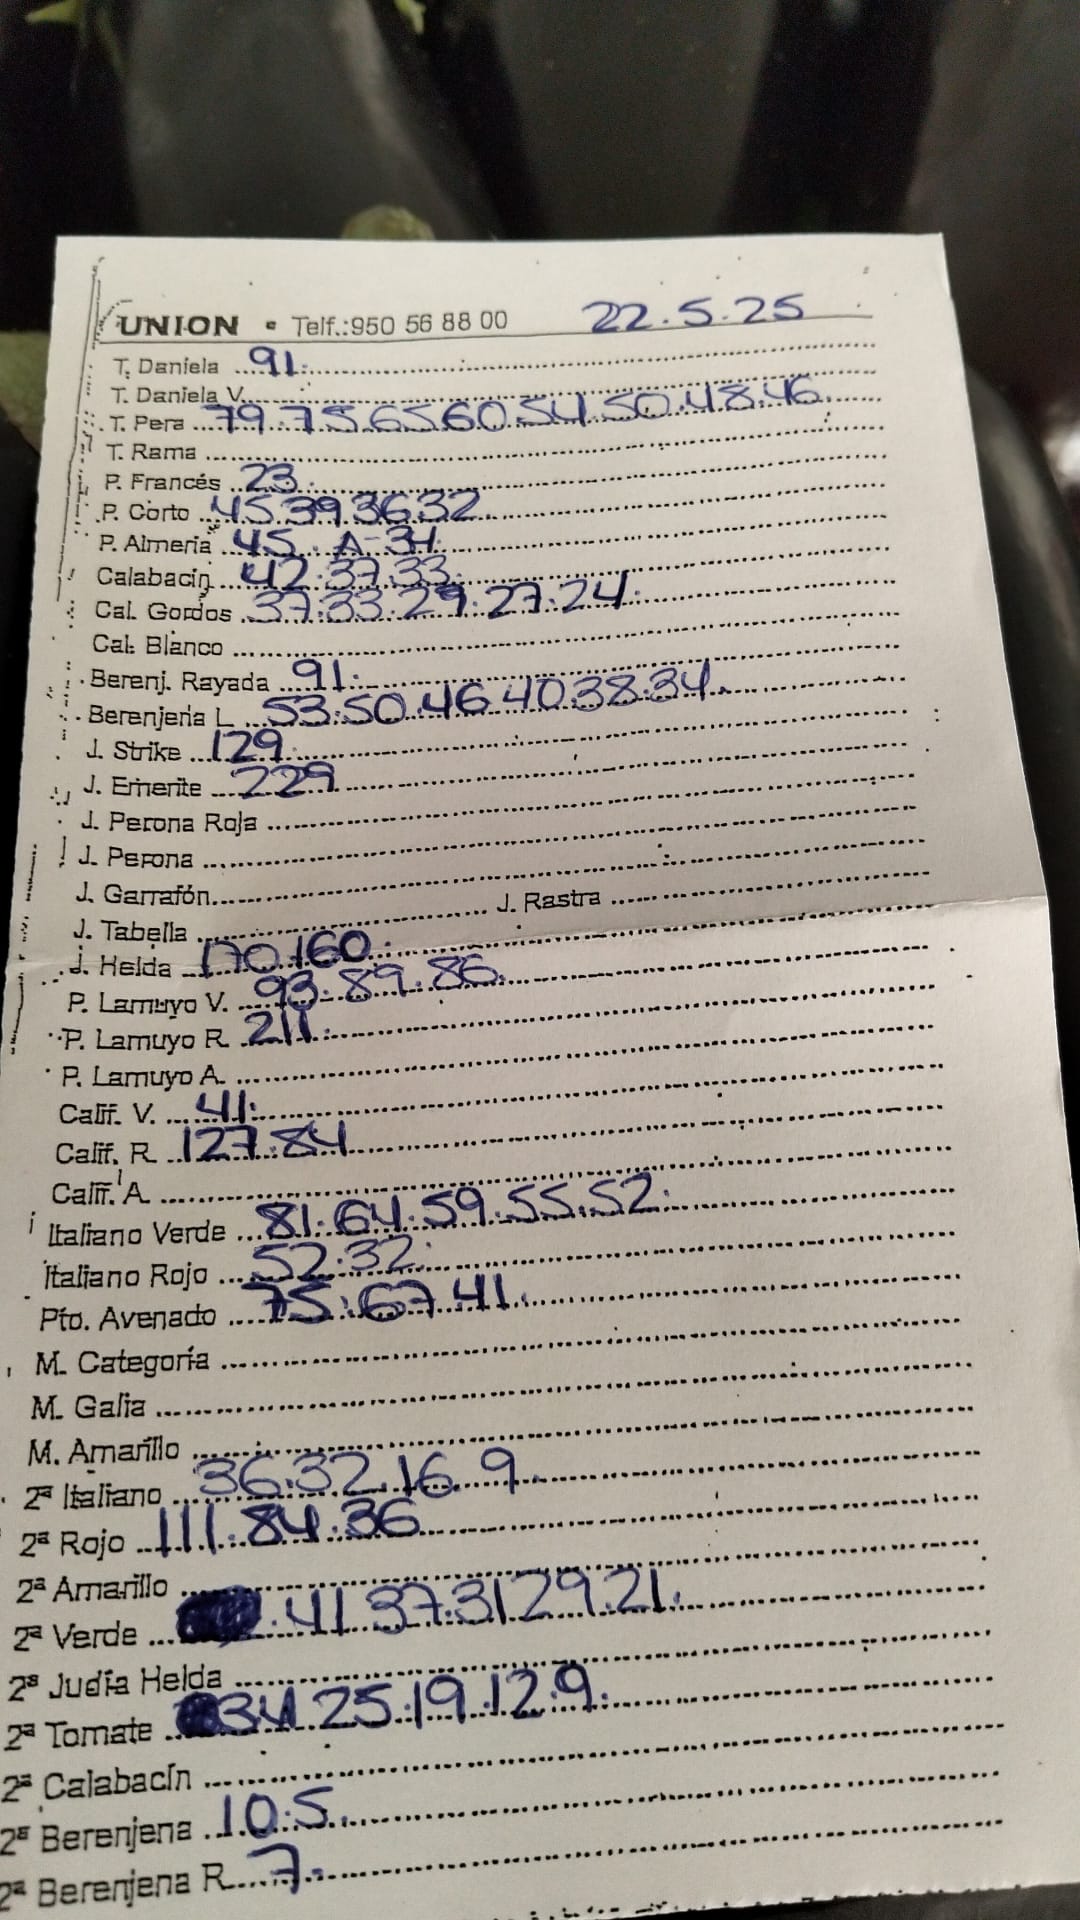 UNION • Telf.:950 56 88 00 22.5.25
T. Daniela 91.
T. Daniela V.
T. Pera 79.75.65.60.54.50.48.46.
T. Rama
P. Francés 23.
P. Corto 45.39.36.32.
P. Almeria 45. A-34.
Calabacin 42.37.33.
Cal. Gordos 37.33.29.27.24.
Cal. Blanco
Berenj. Rayada 91.
Berenjena L 53.50.46.40.38.34.
J. Strike 129.
J. Emerite 229
J. Perona Roja
J. Perona
J. Garrafón
J. Tabella J. Rastra
J. Helda 170.160.
P. Lamuyo V. 93.89.86.
P. Lamuyo R. 211.
P. Lamuyo A.
Calif. V. 41.
Calif. R. 127.84
Calif. A.
Italiano Verde 81.64.59.55.52.
Italiano Rojo 52.32.
Pto. Avenado 75.67.41.
M. Categoría
M. Galia
M. Amarillo
2ª Italiano 36.32.16.9.
2ª Rojo 111.84.36
2ª Amarillo
2ª Verde .41.37.31.29.21.
2ª Judía Helda
2ª Tomate 34.25.19.12.9.
2ª Calabacín
2ª Berenjena 10.5.
2ª Berenjena R. 7.